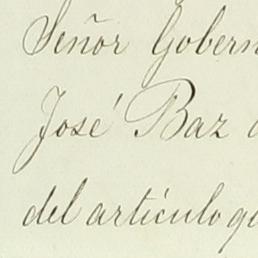 Señor Gobern
José Baz
del artículo